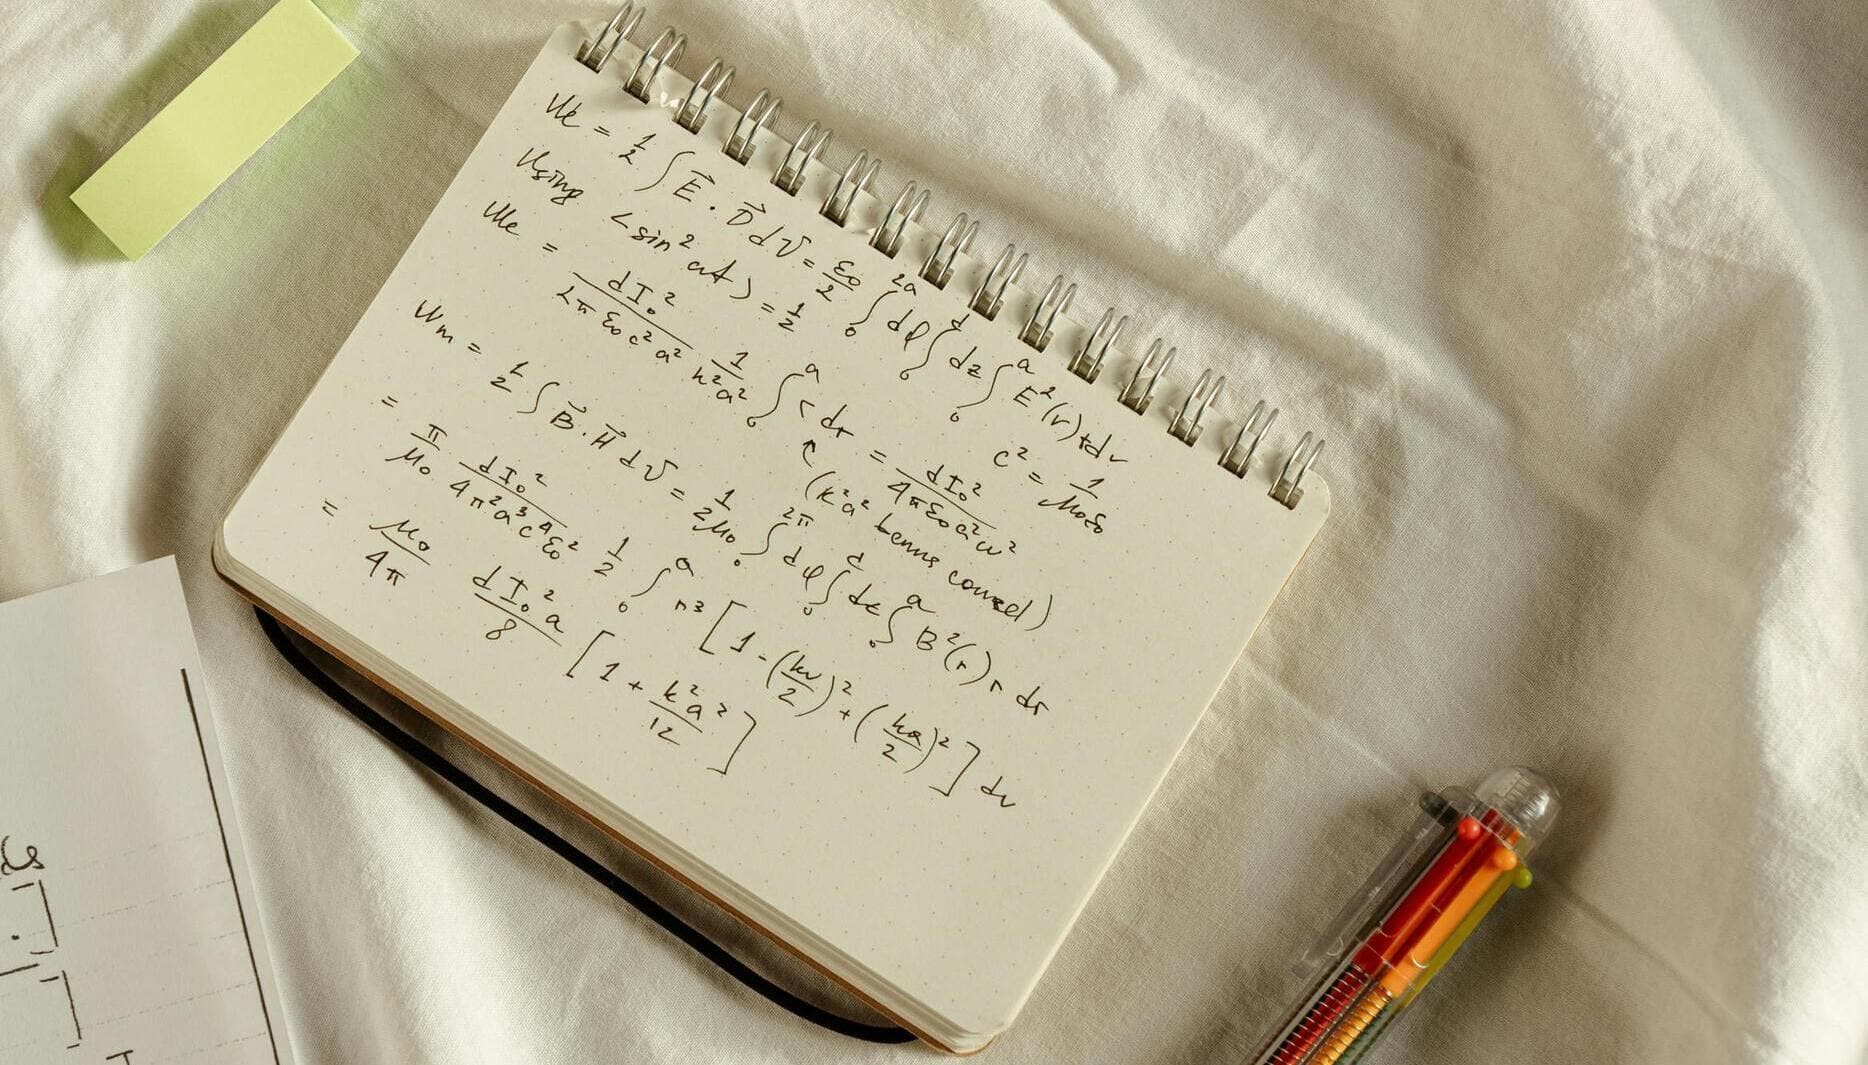 We = 1/2 ∫ E⃗ · D⃗ dV = ε₀/2 ∫₀^2a dφ ∫₀^d dz ∫₀^a E²(r) r dr
Using <sin² ωt> = 1/2 c² = 1/μ₀ε₀
We = dI₀²/2πε₀c²a² 1/k²a² ∫₀^a r dr = dI₀²/4πε₀a²ω²
↑ (k²a² terms)
Wm = 1/2 ∫ B⃗ · H⃗ dV = 1/2μ₀ ∫₀^2π dφ ∫₀^d dz ∫₀^a B²(r) r dr
= π/μ₀ dI₀²/4π²a³c⁴ε₀² 1/2 ∫₀^a r³ [1 - (kr/2)² + (ka/2)²] dr
= μ₀/4π dI₀²a/8 [1 + k²a²/12]